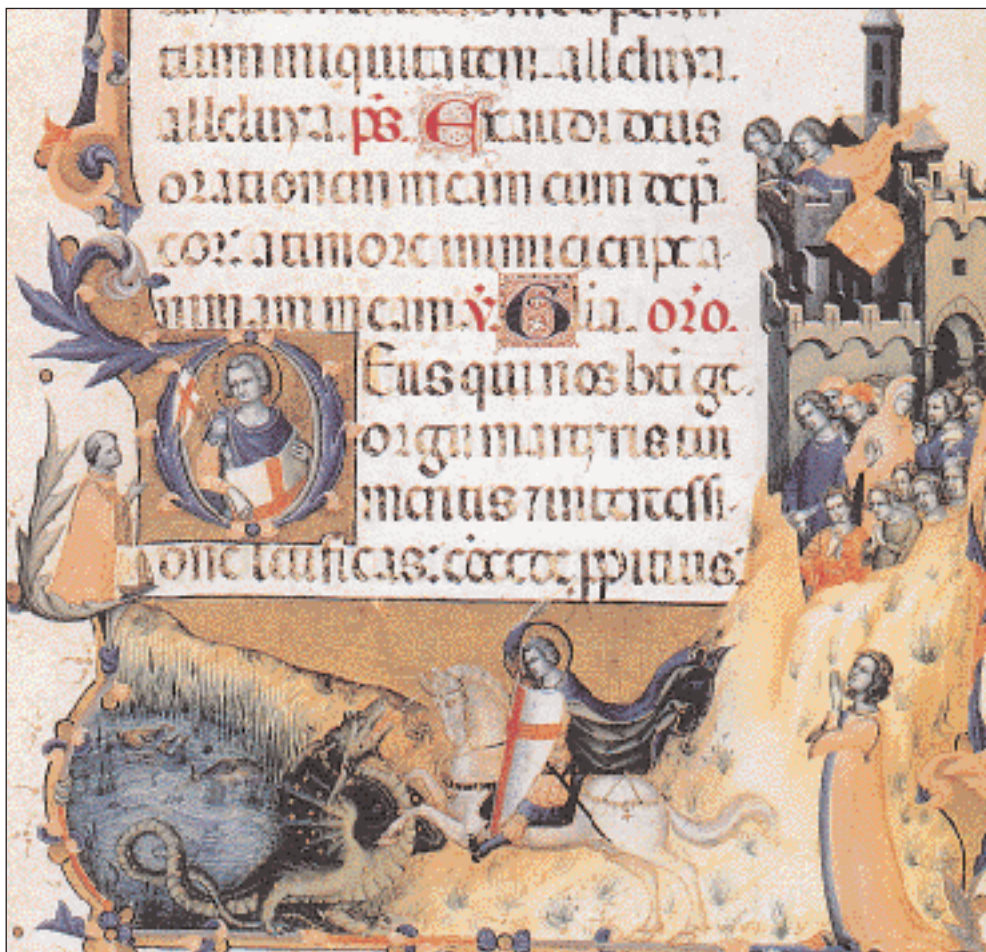 tium iniquitatem. alleluya.
alleluya. ps. Exaudi deus
orationem meam cum dep̄
cor. a timore inimici eripe a
nimam meam. v̇. Glia. oro.
Deus qui nos bti ge
orgii martyris tui
meritis ⁊ intercessi
one letificas: ppitius: